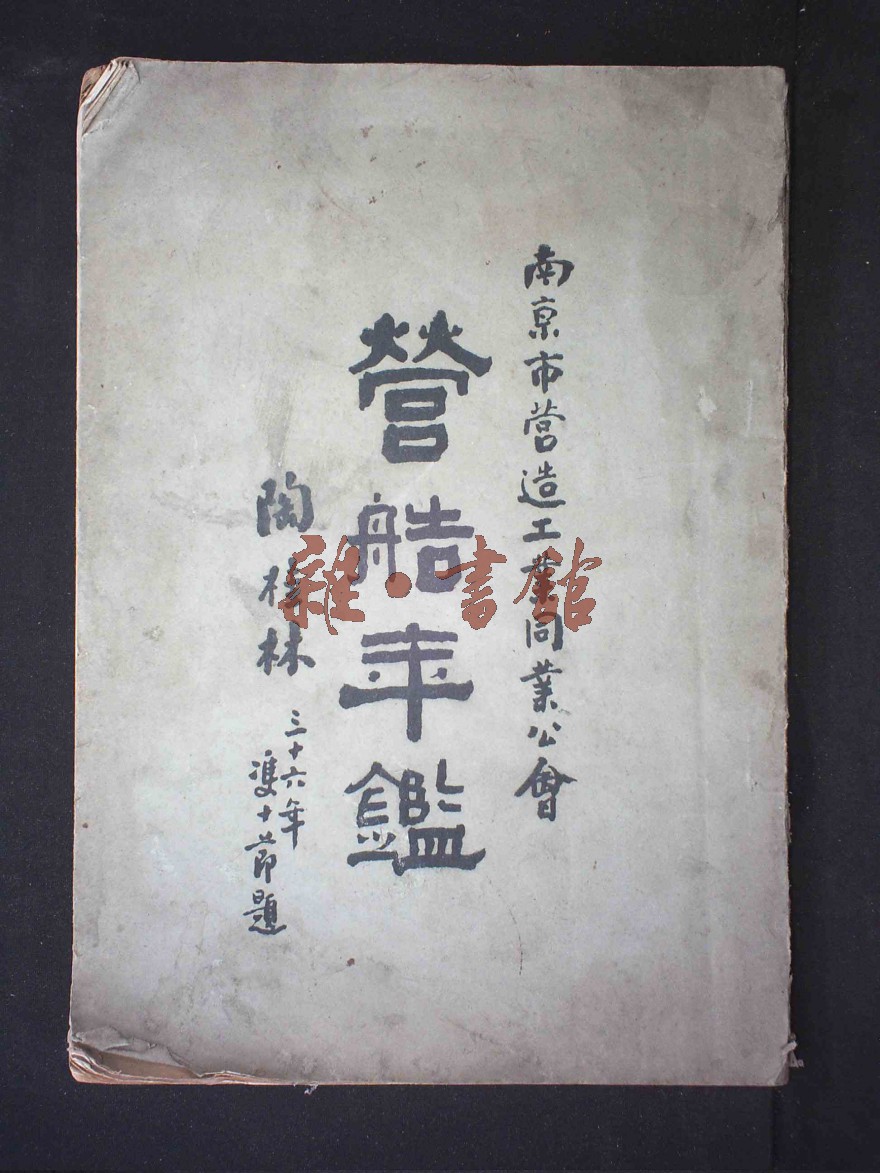 南京市營造工業同業公會
營艁年鑑
陶桂林
三十六年
雙十節題
雜·書館